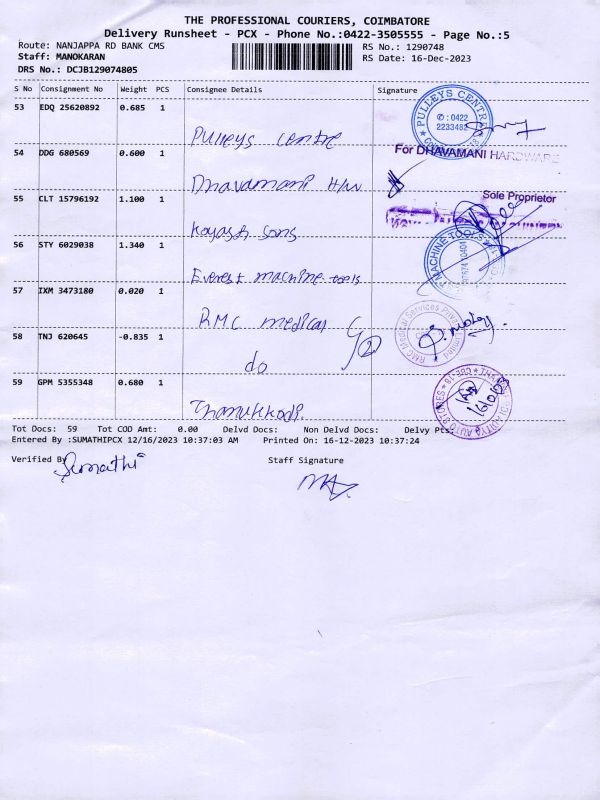 THE PROFESSIONAL COURIERS, COIMBATORE
Delivery Runsheet - PCX - Phone No.:0422-3505555 - Page No.:5
Route: NANJAPPA RD BANK CMS
RS No.: 1290748
Staff: MANOKARAN
RS Date: 16-Dec-2023
DRS No.: DCJB129074805
S No Consignment No Weight PCS Consignee Details Signature
53 EDQ 25620892 0.685 1
PULLEYS CENTRE
✆: 0422
2233482
Pulleys centre
54 DDG 680569 0.600 1
For DHAVAMANI HARDWARE
Dhavamani H/w
Sole Proprietor
55 CLT 15796192 1.100 1
Sons
56 STY 6029038 1.340 1
MACHINE TOOLS
Everest machine tools
57 IXM 3473180 0.020 1
RMC Medical Services Private Limited
RMC medical
58 TNJ 620645 -0.835 1
do
2
59 GPM 5355348 0.680 1
AUTO STORES
Tot Docs: 59 Tot COD Amt: 0.00 Delvd Docs: Non Delvd Docs: Delvy Pts:
Entered By :SUMATHIPCX 12/16/2023 10:37:03 AM Printed On: 16-12-2023 10:37:24
Verified By Sumathi
Staff Signature